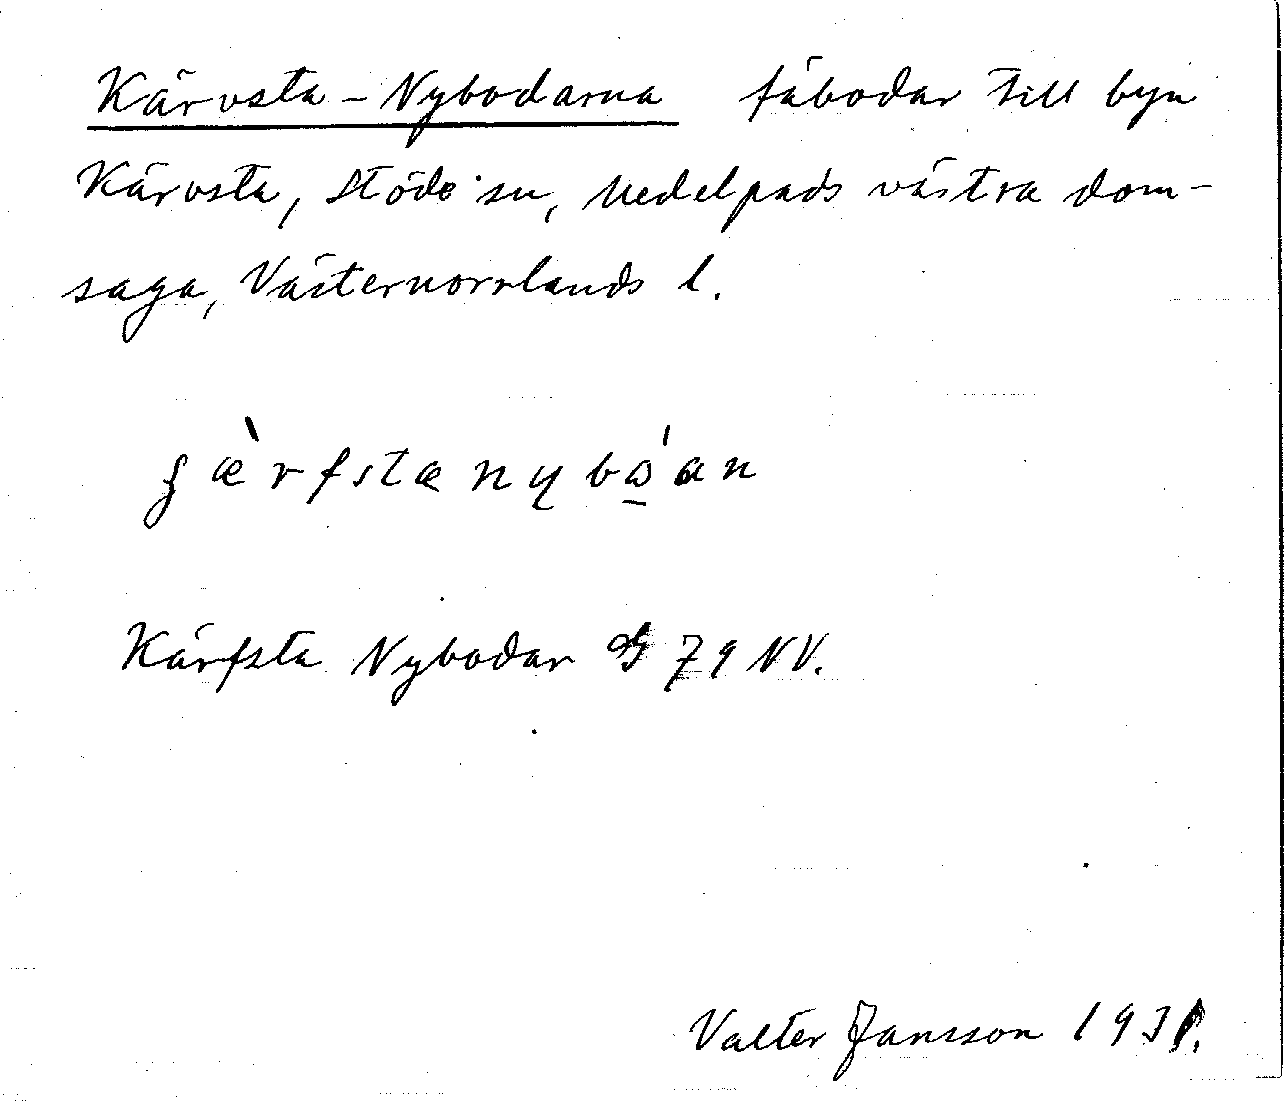 Kärvsta-Nybodarna fäbodar till byn
Kärvsta, Stöde sn, Medelpads västra dom-
saga, Västernorrlands l.
Kärfsta Nybodar G 79 NV.
Valter Jansson 1931.